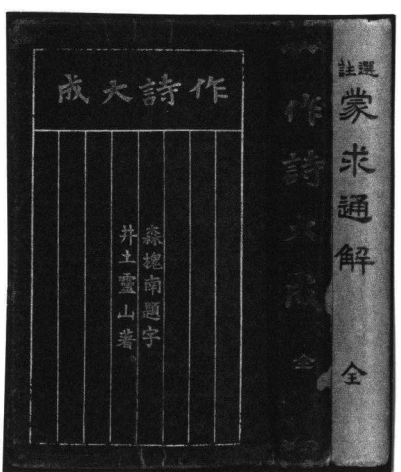 作詩大成
森槐南題字
井土靈山著。
作詩大成 全
選註
蒙求通解 全